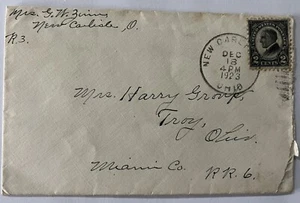 Mrs. G. W. Zinn
New Carlisle, O.
R. 3.
NEW CARL
DEC
18
4 PM
1923
OHIO
2 CENTS 2
Mrs. Harry Grove,
Troy,
Ohio.
Miami Co.
R.R. 6.